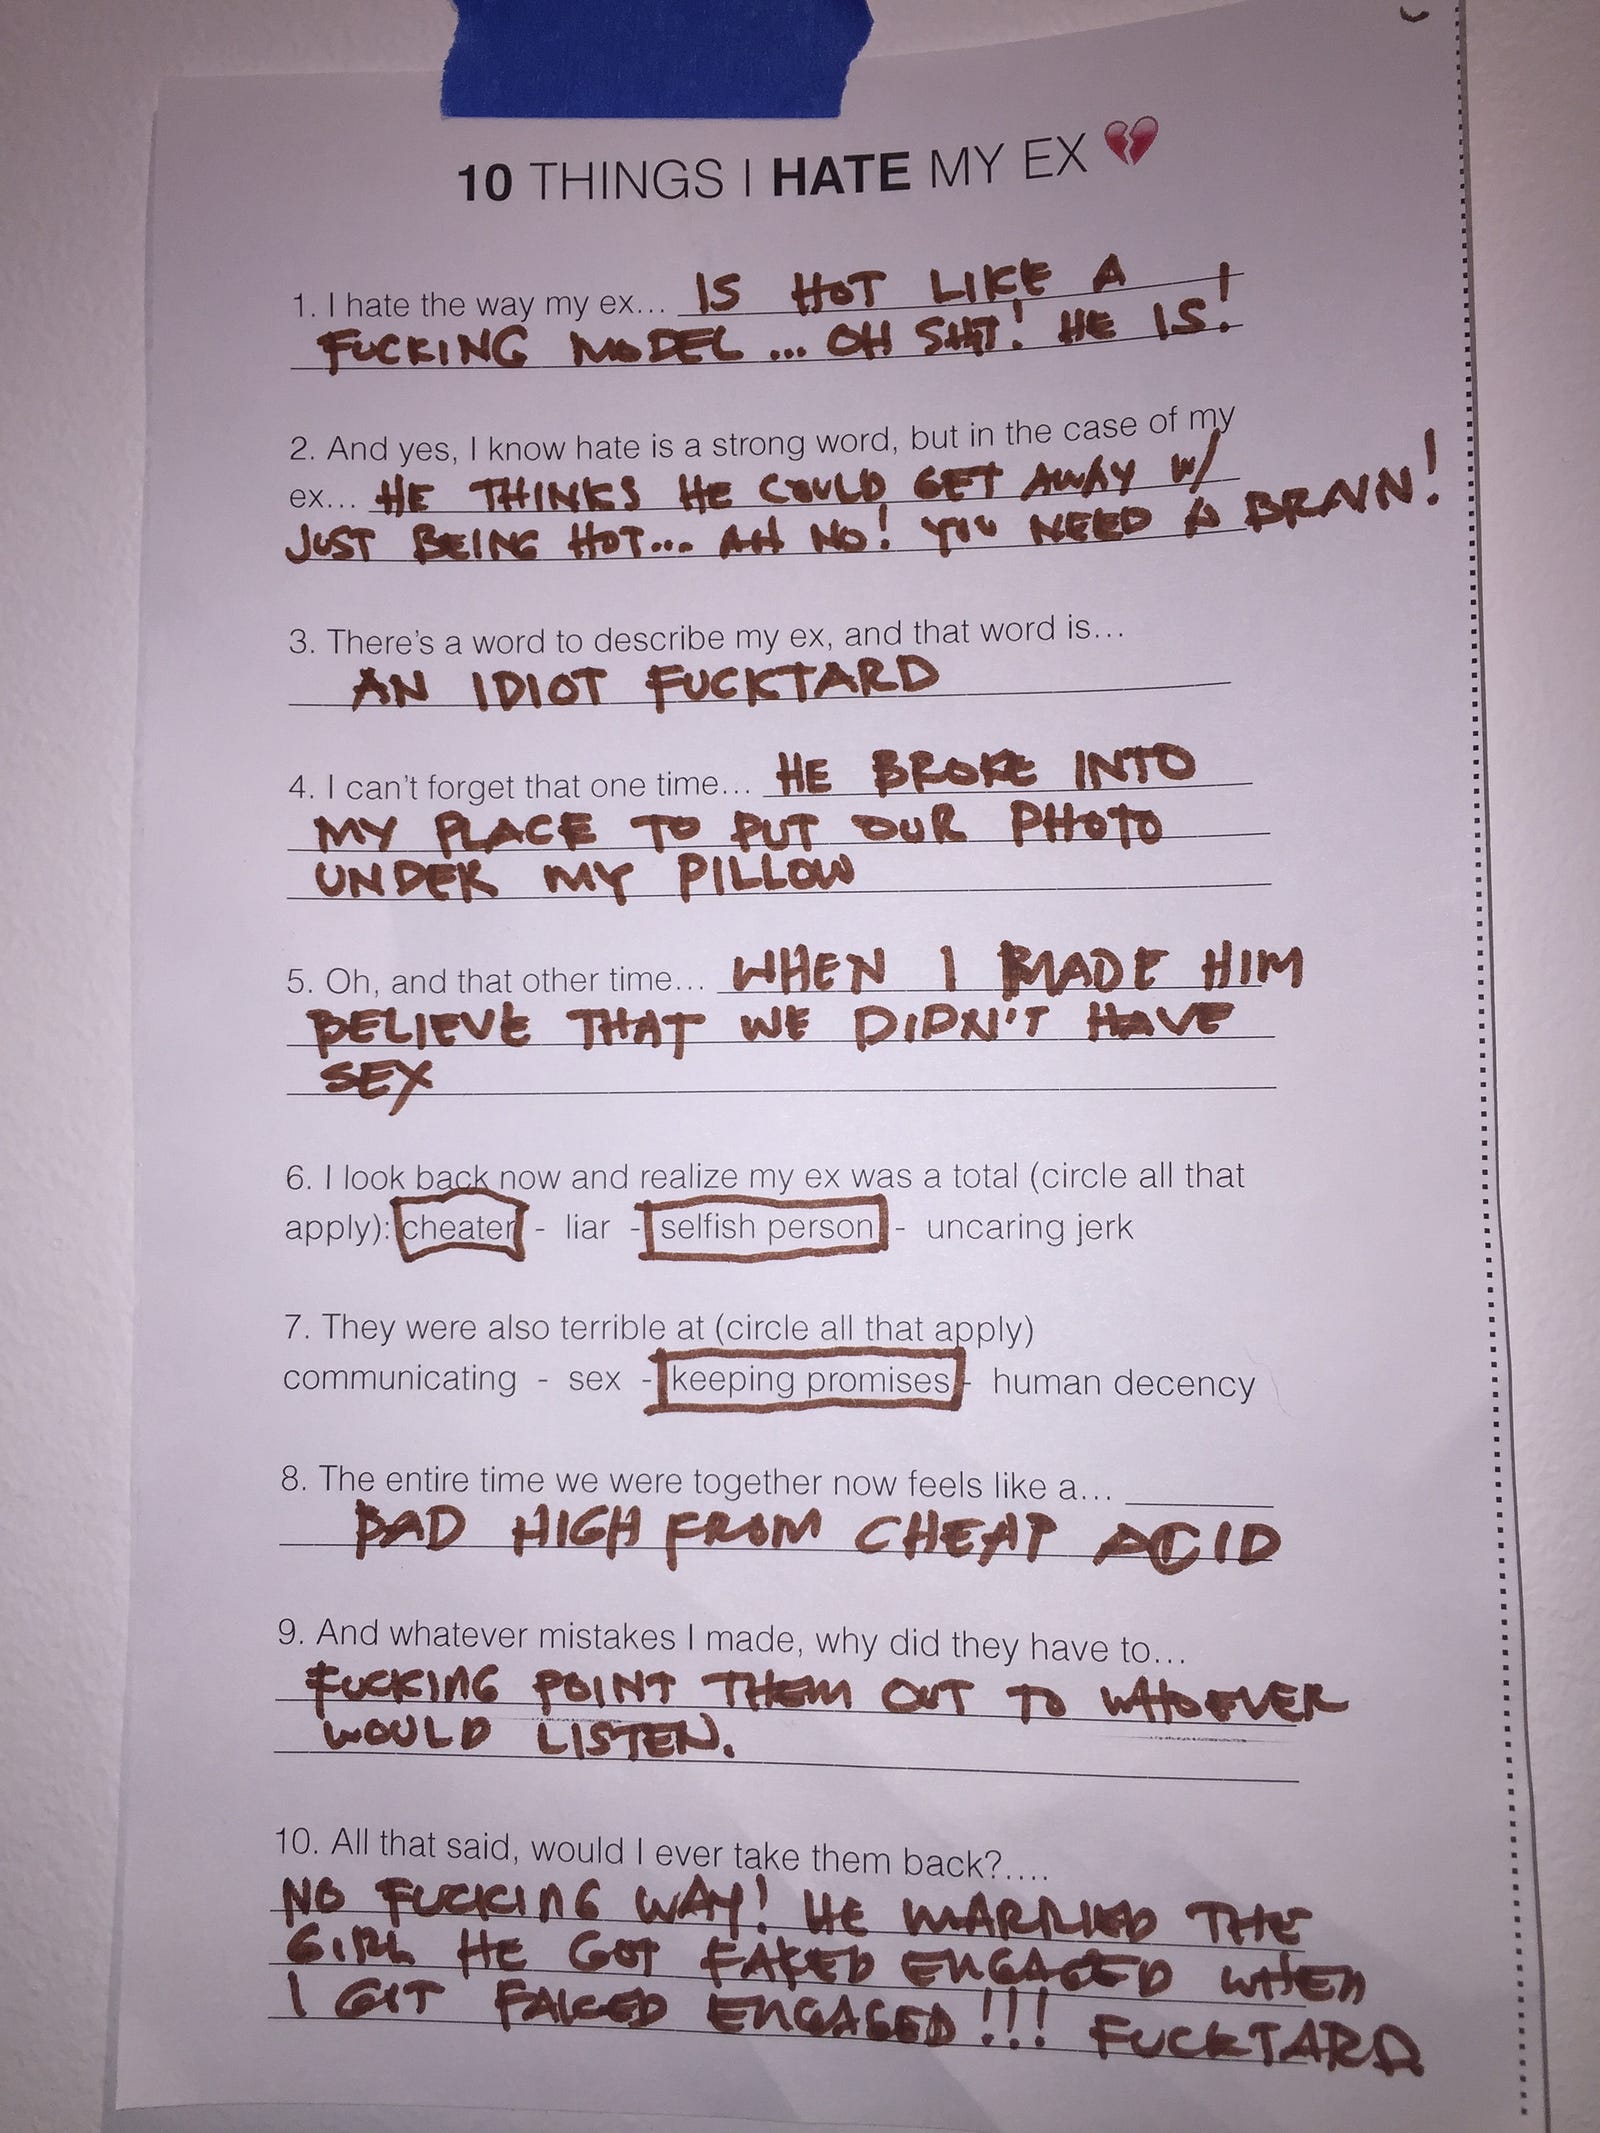 10 THINGS I HATE MY EX 💔
1. I hate the way my ex... IS HOT LIKE A
FUCKING MODEL ... OH SHIT! HE IS!
2. And yes, I know hate is a strong word, but in the case of my
ex... HE THINKS HE COULD GET AWAY W/
JUST BEING HOT... AH NO! YOU NEED A BRAIN!
3. There's a word to describe my ex, and that word is...
AN IDIOT FUCKTARD
4. I can't forget that one time... HE BROKE INTO
MY PLACE TO PUT OUR PHOTO
UNDER MY PILLOW
5. Oh, and that other time... WHEN I MADE HIM
BELIEVE THAT WE DIDN'T HAVE
SEX
6. I look back now and realize my ex was a total (circle all that
apply): cheater - liar - selfish person - uncaring jerk
7. They were also terrible at (circle all that apply)
communicating - sex - keeping promises - human decency
8. The entire time we were together now feels like a...
BAD HIGH FROM CHEAP ACID
9. And whatever mistakes I made, why did they have to...
FUCKING POINT THEM OUT TO WHOEVER
WOULD LISTEN.
10. All that said, would I ever take them back?....
NO FUCKING WAY! HE MARRIED THE
GIRL HE GOT FAKED ENGAGED WHEN
I GOT FAKED ENGAGED!!! FUCKTARD